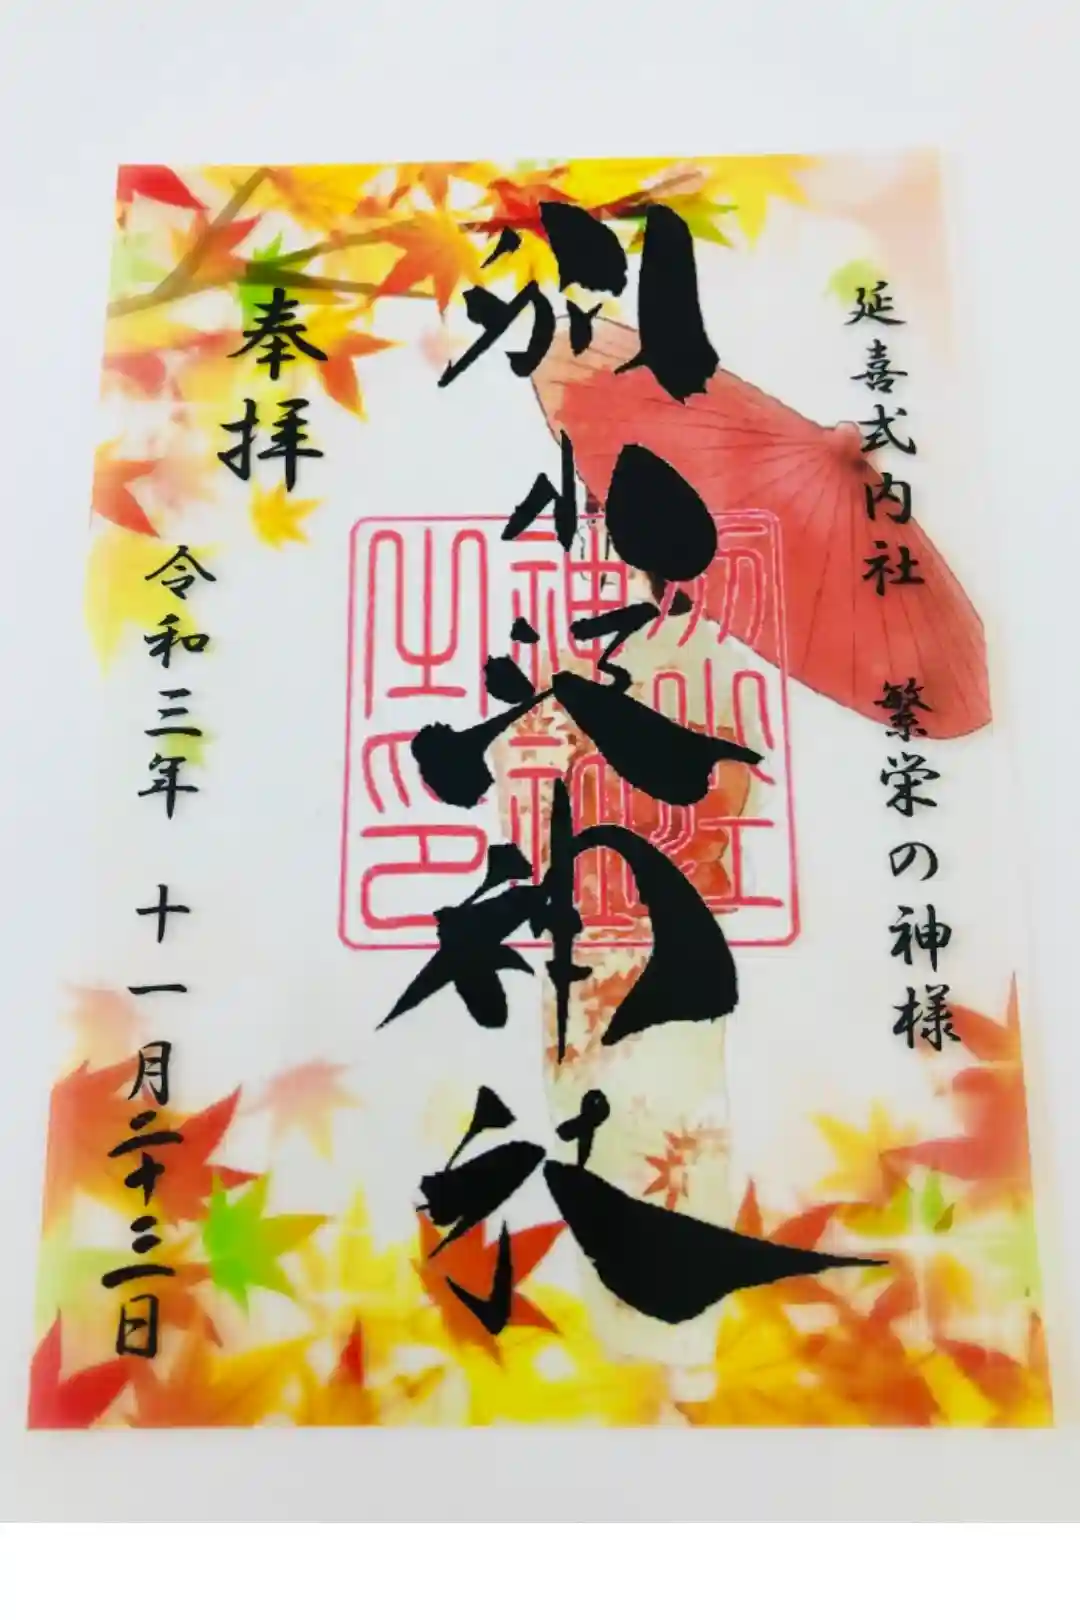 延喜式内社 繁栄の神様
別小江神社
別小江
神社
之印
奉拝
令和三年 十一月二十三日